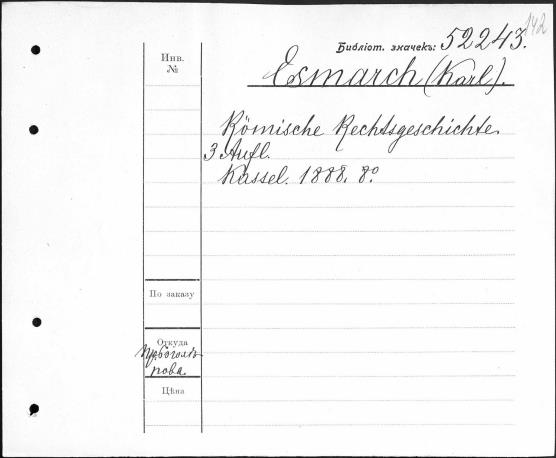 142
Библіот. значекъ: 52243.
Инв.
№
Esmarch (Karl).
Römische Rechtsgeschichte.
3 Aufl.
Kassel. 1888. 8º
По заказу
Откуда
Пр. Боголѣ
пова
Цѣна